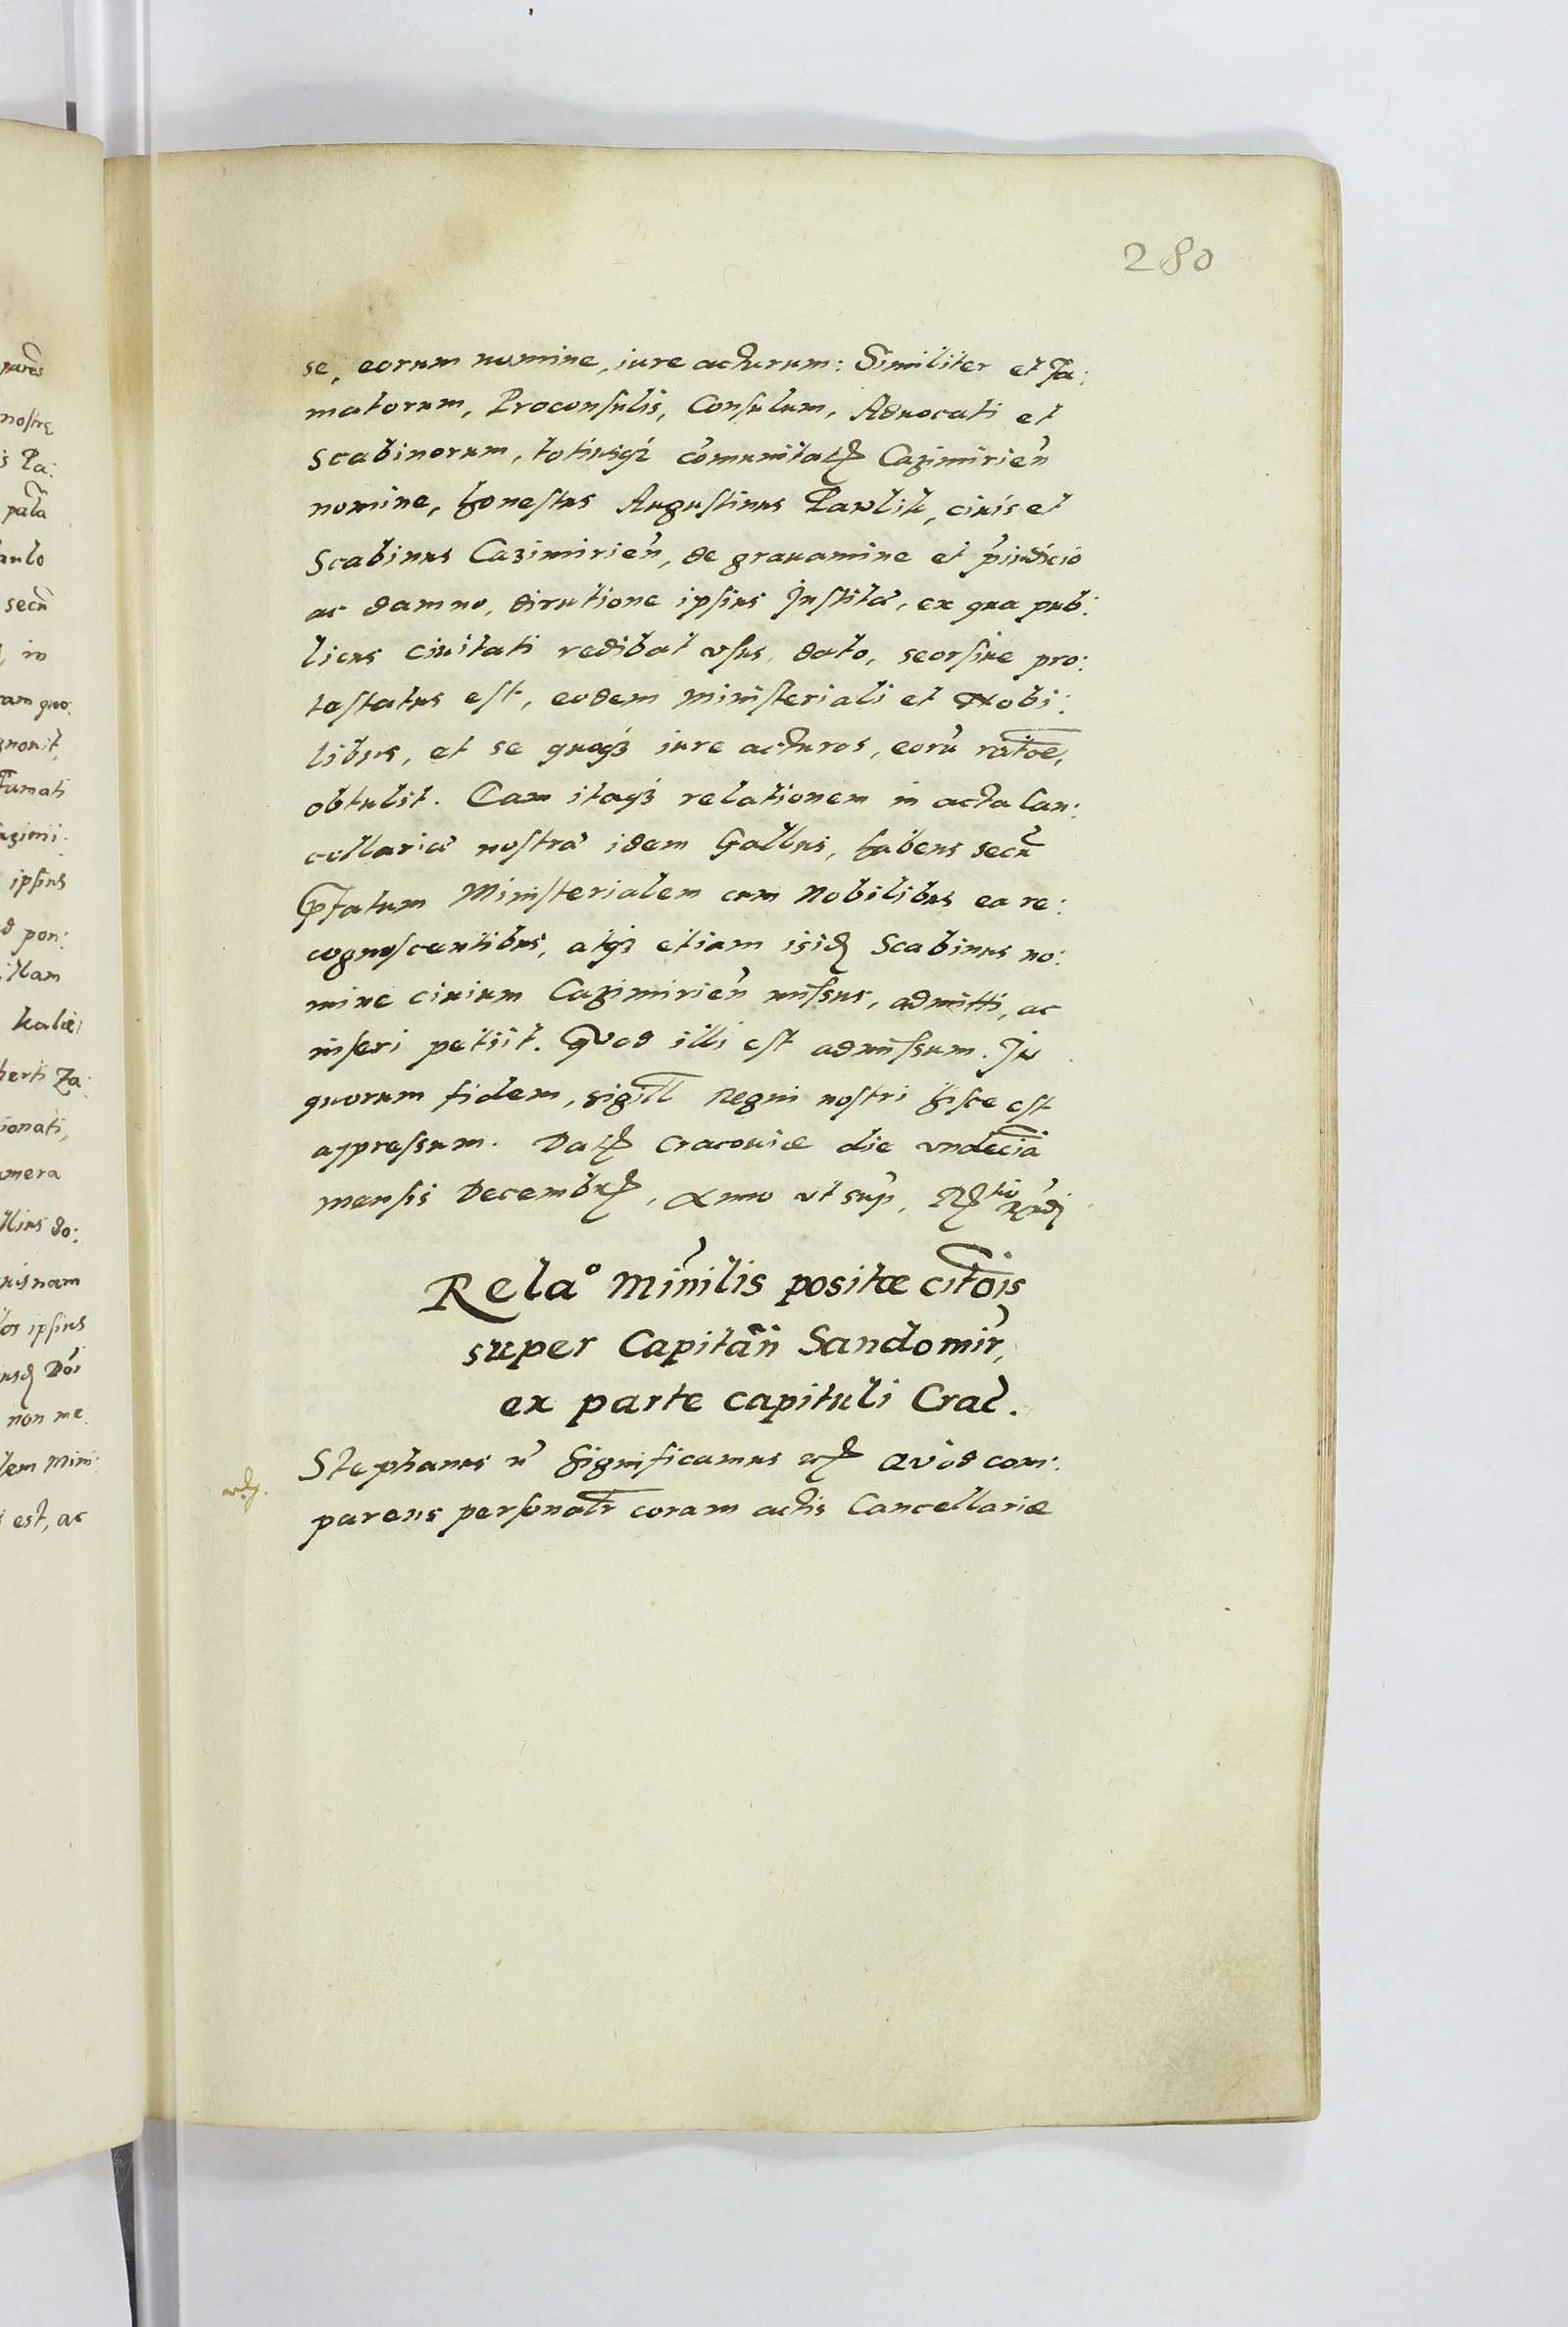 280
se, eorum nomine, iure acturum: Similiter et Fa:
matorum, Proconsulis, Consulum, Aduocati et
Scabinorum, totiusq₃ com̄unitatꝭ Cazimirien̄
nomine, honestus Augustinus Pawlik, ciuis et
Scabinus Cazimirien̄, de grauamine et p̄iudicio
ac damno, dirutione ipsius Institæ, ex qua pub:
licus ciuitati redibat vsus, dato, seorsiue pro:
testatus est, eodem ministeriali et Nobi:
libus, et se quoq₃ iure acturos, eorū ratōe,
obtulit. Eam itaq₃ relationem in acta Can:
cellariæ nostræ idem Gallus, habens secū
p̄fatum Ministerialem cum Nobilibus ea re:
cognoscentibus, atq₃ etiam isid Scabinus no:
mine ciuium Cazimirien̄ missus, admitti, ac
inseri petiit. Quod illi est admissum. In
quorum fidem, sigill Regni nostri hisce est
appressum. Datꝭ Cracouiæ die vndecīa
mensis Decembrꝭ, Anno vt sup̄,
Relaº Min̄ilis positæ citōis
super Capitān Sandomir̄,
ex parte capituli Crac̄.
Stephanus n̄ Significamus etꝭ Quod com:
parens personalr̄ coram actis Cancellariæ
parēs
nostrę
s Pa:
palā
aulo
secū
, in
ram quo:
gnouit,
Famati
azimi:
ipsius
d pon:
illam
kalæ
berti Za:
ionati,
mera
llius do:
uisnam
los ipsius
usd Dōi
non me
dem Mini:
s est, ac